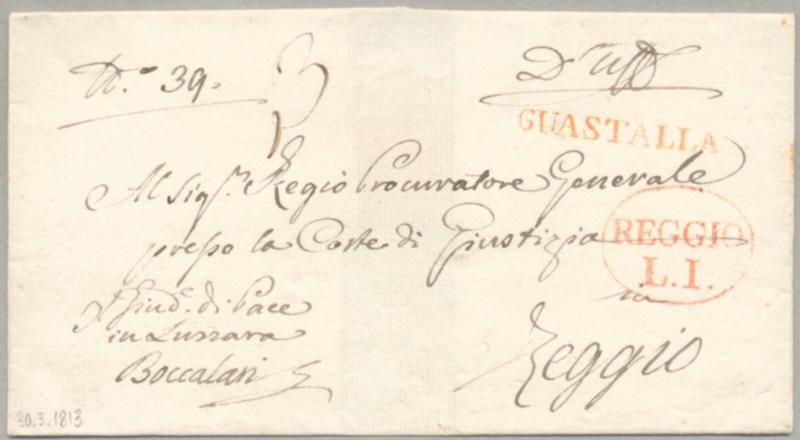 N.° 39.
3
D'Uff
GUASTALLA
Al Sig.r Regio Procuratore Generale
presso la Corte di Giustizia
REGGIO
L.I.
in
Reggio
Il Giud.e di Pace
in Luzzara
Boccalari
30.3.1813